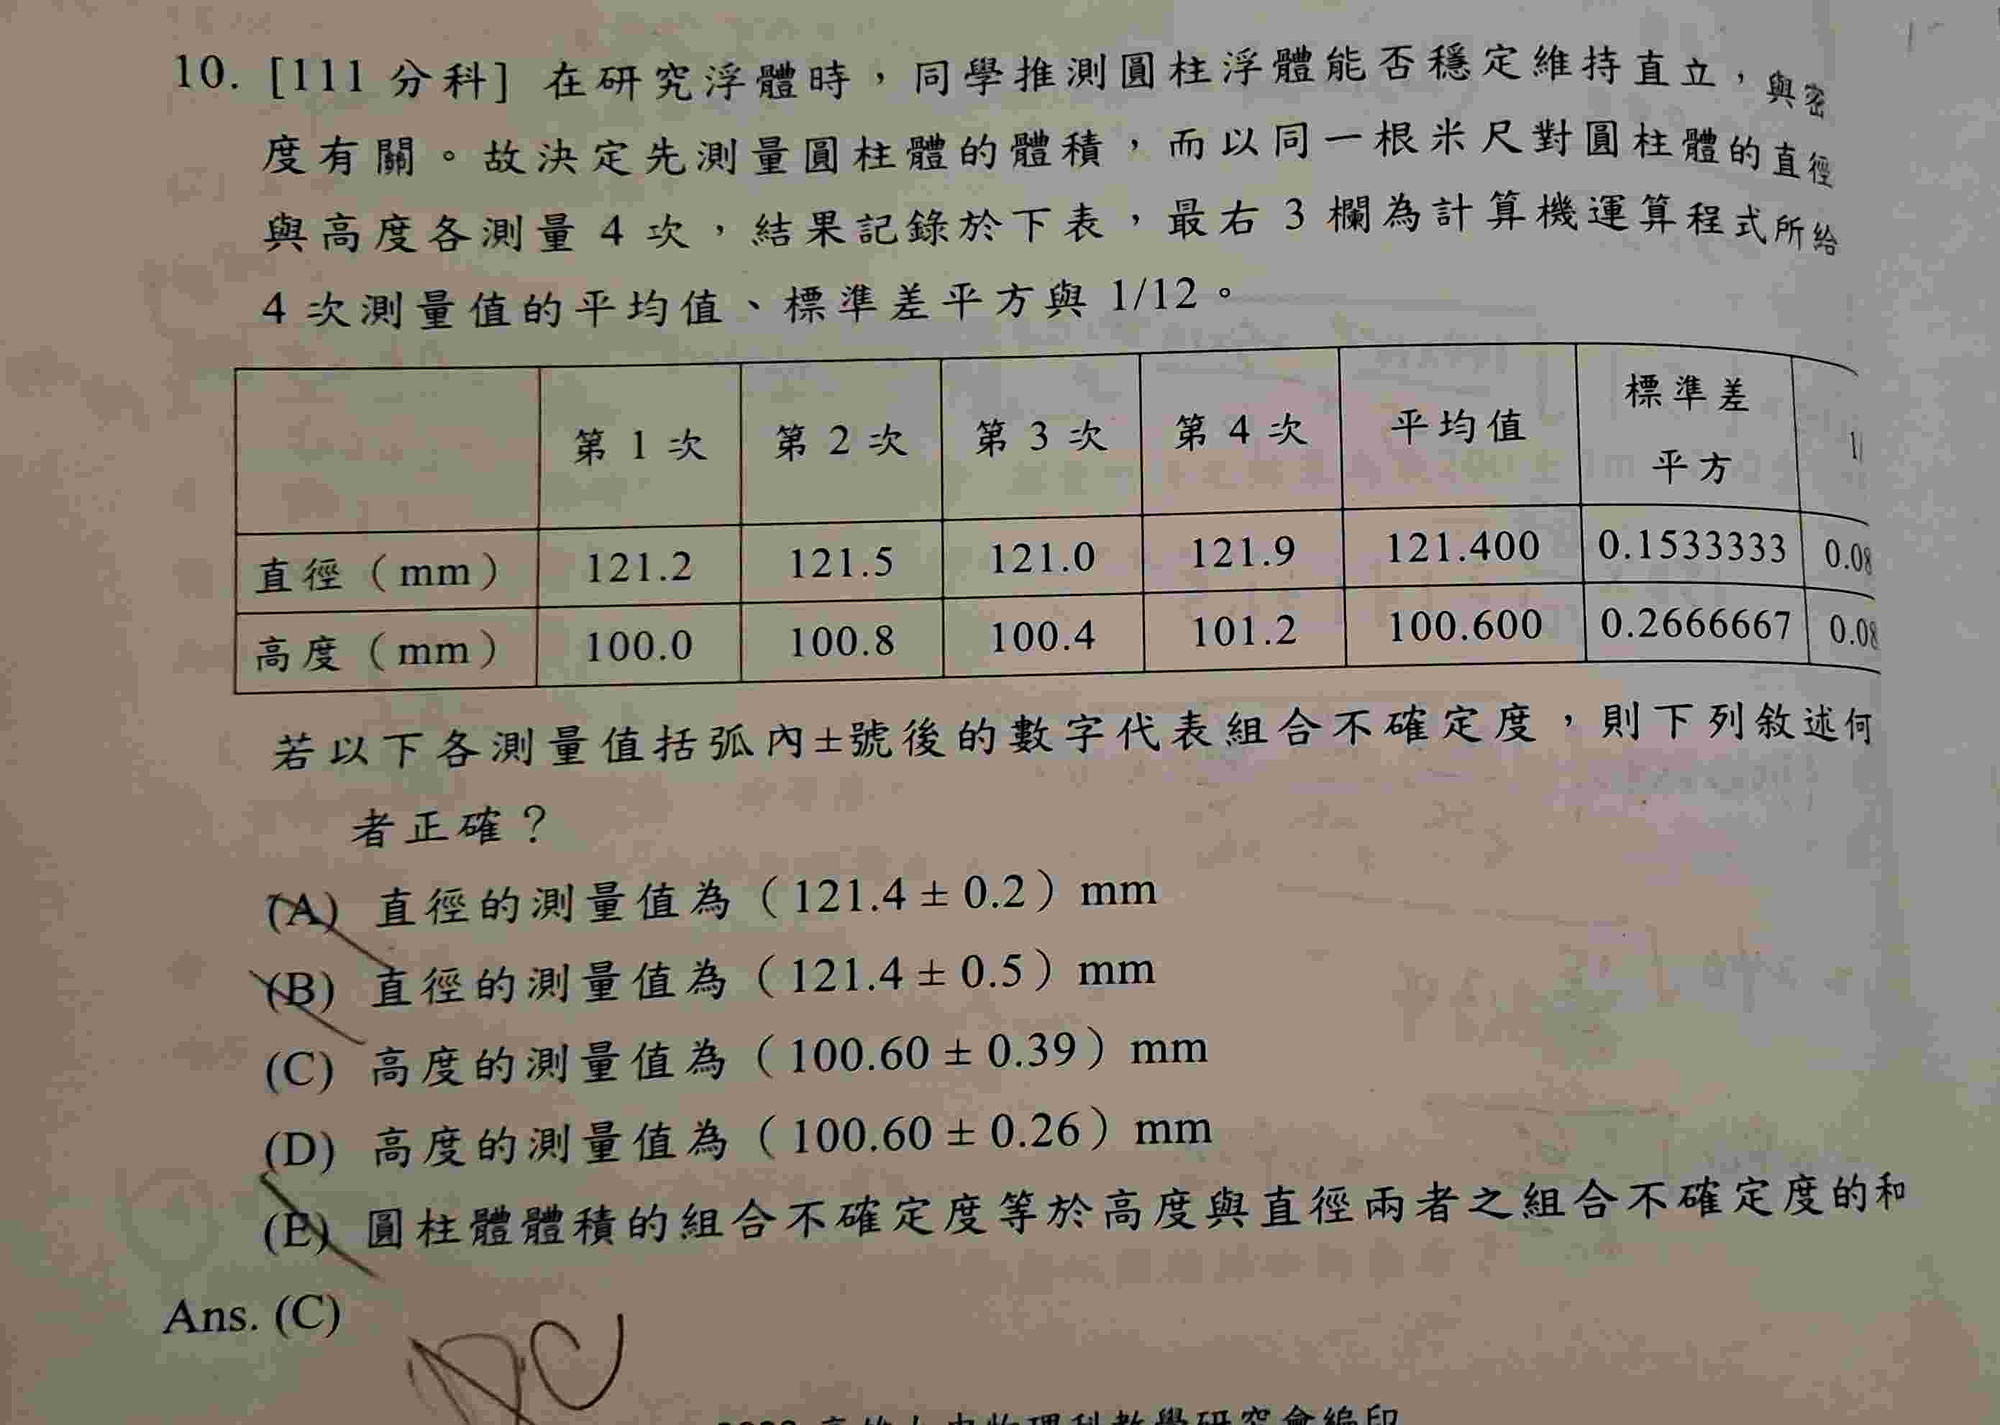 10. [111 分科] 在研究浮體時，同學推測圓柱浮體能否穩定維持直立，與密
度有關。故決定先測量圓柱體的體積，而以同一根米尺對圓柱體的直徑
與高度各測量 4 次，結果記錄於下表，最右 3 欄為計算機運算程式所給
4 次測量值的平均值、標準差平方與 1/12。
第 1 次 第 2 次 第 3 次 第 4 次 平均值 標準差平方 1/
直徑（mm） 121.2 121.5 121.0 121.9 121.400 0.1533333 0.08
高度（mm） 100.0 100.8 100.4 101.2 100.600 0.2666667 0.08
若以下各測量值括弧內±號後的數字代表組合不確定度，則下列敘述何
者正確？
(A) 直徑的測量值為（121.4 ± 0.2）mm
(B) 直徑的測量值為（121.4 ± 0.5）mm
(C) 高度的測量值為（100.60 ± 0.39）mm
(D) 高度的測量值為（100.60 ± 0.26）mm
(E) 圓柱體體積的組合不確定度等於高度與直徑兩者之組合不確定度的和
Ans. (C)